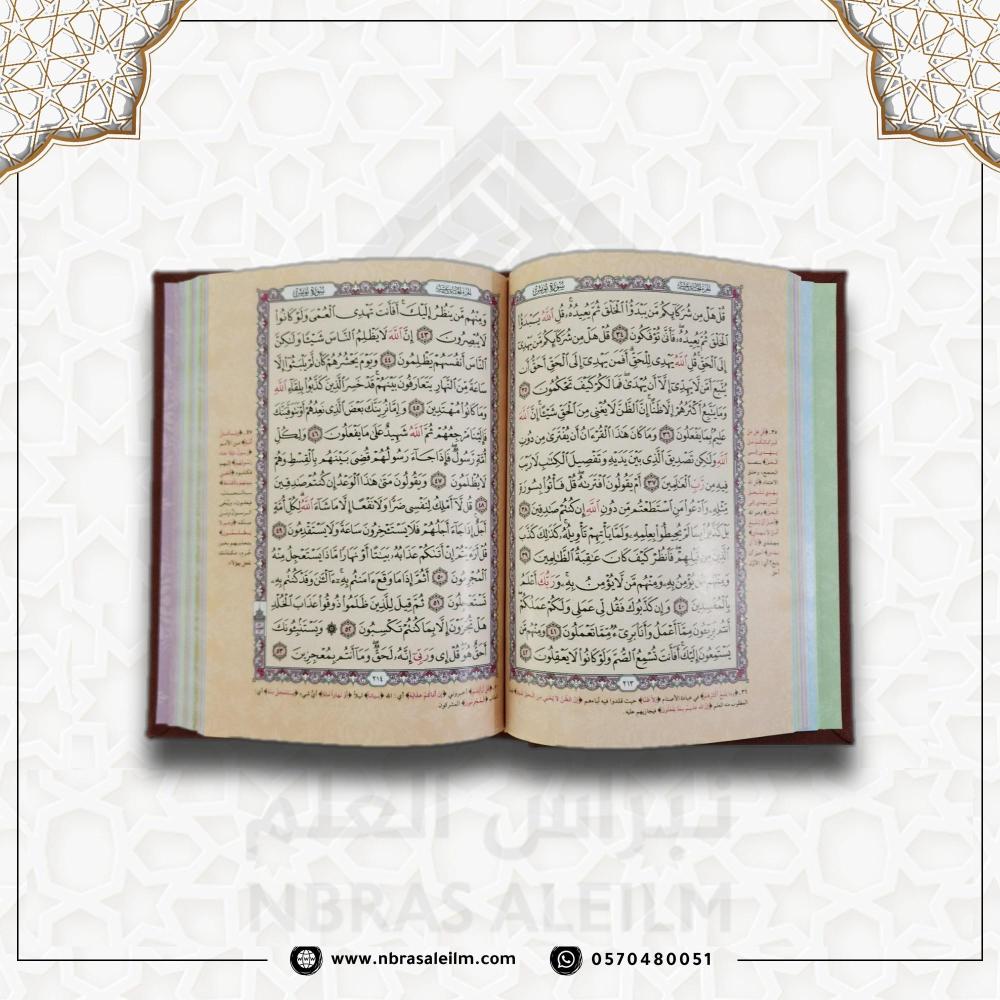 سورة يونس
الجزء الحادي عشر
قُلْ هَلْ مِن شُرَكَآئِكُم مَّن يَبْدَؤُا۟ ٱلْخَلْقَ ثُمَّ يُعِيدُهُۥۚ قُلِ ٱللَّهُ يَبْدَؤُا۟
ٱلْخَلْقَ ثُمَّ يُعِيدُهُۥۖ فَأَنَّىٰ تُؤْفَكُونَ ٣٤ قُلْ هَلْ مِن شُرَكَآئِكُم مَّن يَهْدِىٓ
إِلَى ٱلْحَقِّۚ قُلِ ٱللَّهُ يَهْدِى لِلْحَقِّۗ أَفَمَن يَهْدِىٓ إِلَى ٱلْحَقِّ أَحَقُّ أَن
يُتَّبَعَ أَمَّن لَّا يَهِدِّىٓ إِلَّآ أَن يُهْدَىٰۖ فَمَا لَكُمْ كَيْفَ تَحْكُمُونَ ٣٥
وَمَا يَتَّبِعُ أَكْثَرُهُمْ إِلَّا ظَنًّاۚ إِنَّ ٱلظَّنَّ لَا يُغْنِى مِنَ ٱلْحَقِّ شَيْـًٔاۚ إِنَّ ٱللَّهَ
عَلِيمٌۢ بِمَا يَفْعَلُونَ ٣٦ وَمَا كَانَ هَٰذَا ٱلْقُرْءَانُ أَن يُفْتَرَىٰ مِن دُونِ
ٱللَّهِ وَلَٰكِن تَصْدِيقَ ٱلَّذِى بَيْنَ يَدَيْهِ وَتَفْصِيلَ ٱلْكِتَٰبِ لَا رَيْبَ
فِيهِ مِن رَّبِّ ٱلْعَٰلَمِينَ ٣٧ أَمْ يَقُولُونَ ٱفْتَرَىٰهُۖ قُلْ فَأْتُوا۟ بِسُورَةٍ
مِّثْلِهِۦ وَٱدْعُوا۟ مَنِ ٱسْتَطَعْتُم مِّن دُونِ ٱللَّهِ إِن كُنتُمْ صَٰدِقِينَ ٣٨
بَلْ كَذَّبُوا۟ بِمَا لَمْ يُحِيطُوا۟ بِعِلْمِهِۦ وَلَمَّا يَأْتِهِمْ تَأْوِيلُهُۥۚ كَذَٰلِكَ كَذَّبَ
ٱلَّذِينَ مِن قَبْلِهِمْۖ فَٱنظُرْ كَيْفَ كَانَ عَٰقِبَةُ ٱلظَّٰلِمِينَ ٣٩
وَمِنْهُم مَّن يُؤْمِنُ بِهِۦ وَمِنْهُم مَّن لَّا يُؤْمِنُ بِهِۦۚ وَرَبُّكَ أَعْلَمُ
بِٱلْمُفْسِدِينَ ٤٠ وَإِن كَذَّبُوكَ فَقُل لِّى عَمَلِى وَلَكُمْ عَمَلُكُمْۖ
أَنتُم بَرِيٓـُٔونَ مِمَّآ أَعْمَلُ وَأَنَا۠ بَرِىٓءٌ مِّمَّا تَعْمَلُونَ ٤١ وَمِنْهُم مَّن
يَسْتَمِعُونَ إِلَيْكَۚ أَفَأَنتَ تُسْمِعُ ٱلصُّمَّ وَلَوْ كَانُوا۟ لَا يَعْقِلُونَ ٤٢
٢١٣
سورة يونس
الجزء الحادي عشر
وَمِنْهُم مَّن يَنظُرُ إِلَيْكَۚ أَفَأَنتَ تَهْدِى ٱلْعُمْىَ وَلَوْ كَانُوا۟
لَا يُبْصِرُونَ ٤٣ إِنَّ ٱللَّهَ لَا يَظْلِمُ ٱلنَّاسَ شَيْـًٔا وَلَٰكِنَّ
ٱلنَّاسَ أَنفُسَهُمْ يَظْلِمُونَ ٤٤ وَيَوْمَ يَحْشُرُهُمْ كَأَن لَّمْ يَلْبَثُوٓا۟ إِلَّا
سَاعَةً مِّنَ ٱلنَّهَارِ يَتَعَارَفُونَ بَيْنَهُمْۚ قَدْ خَسِرَ ٱلَّذِينَ كَذَّبُوا۟ بِلِقَآءِ ٱللَّهِ
وَمَا كَانُوا۟ مُهْتَدِينَ ٤٥ وَإِمَّا نُرِيَنَّكَ بَعْضَ ٱلَّذِى نَعِدُهُمْ أَوْ نَتَوَفَّيَنَّكَ
فَإِلَيْنَا مَرْجِعُهُمْ ثُمَّ ٱللَّهُ شَهِيدٌ عَلَىٰ مَا يَفْعَلُونَ ٤٦ وَلِكُلِّ
أُمَّةٍ رَّسُولٌۖ فَإِذَا جَآءَ رَسُولُهُمْ قُضِىَ بَيْنَهُم بِٱلْقِسْطِ وَهُمْ
لَا يُظْلَمُونَ ٤٧ وَيَقُولُونَ مَتَىٰ هَٰذَا ٱلْوَعْدُ إِن كُنتُمْ صَٰدِقِينَ
٤٨ قُل لَّآ أَمْلِكُ لِنَفْسِى ضَرًّا وَلَا نَفْعًا إِلَّا مَا شَآءَ ٱللَّهُۗ لِكُلِّ أُمَّةٍ
أَجَلٌۚ إِذَا جَآءَ أَجَلُهُمْ فَلَا يَسْتَـْٔخِرُونَ سَاعَةً وَلَا يَسْتَقْدِمُونَ ٤٩
قُلْ أَرَءَيْتُمْ إِنْ أَتَىٰكُمْ عَذَابُهُۥ بَيَٰتًا أَوْ نَهَارًا مَّاذَا يَسْتَعْجِلُ مِنْهُ
ٱلْمُجْرِمُونَ ٥٠ أَثُمَّ إِذَا مَا وَقَعَ ءَامَنتُم بِهِۦٓۚ ءَآلْـَٰٔنَ وَقَدْ كُنتُم بِهِۦ
تَسْتَعْجِلُونَ ٥١ ثُمَّ قِيلَ لِلَّذِينَ ظَلَمُوا۟ ذُوقُوا۟ عَذَابَ ٱلْخُلْدِ
هَلْ تُجْزَوْنَ إِلَّا بِمَا كُنتُمْ تَكْسِبُونَ ٥٢ ۞ وَيَسْتَنۢبِـُٔونَكَ
أَحَقٌّ هُوَۖ قُلْ إِى وَرَبِّىٓ إِنَّهُۥ لَحَقٌّۖ وَمَآ أَنتُم بِمُعْجِزِينَ ٥٣
٢١٤
نبراس العلم
NBRAS ALEILM
www.nbrasaleilm.com
0570480051